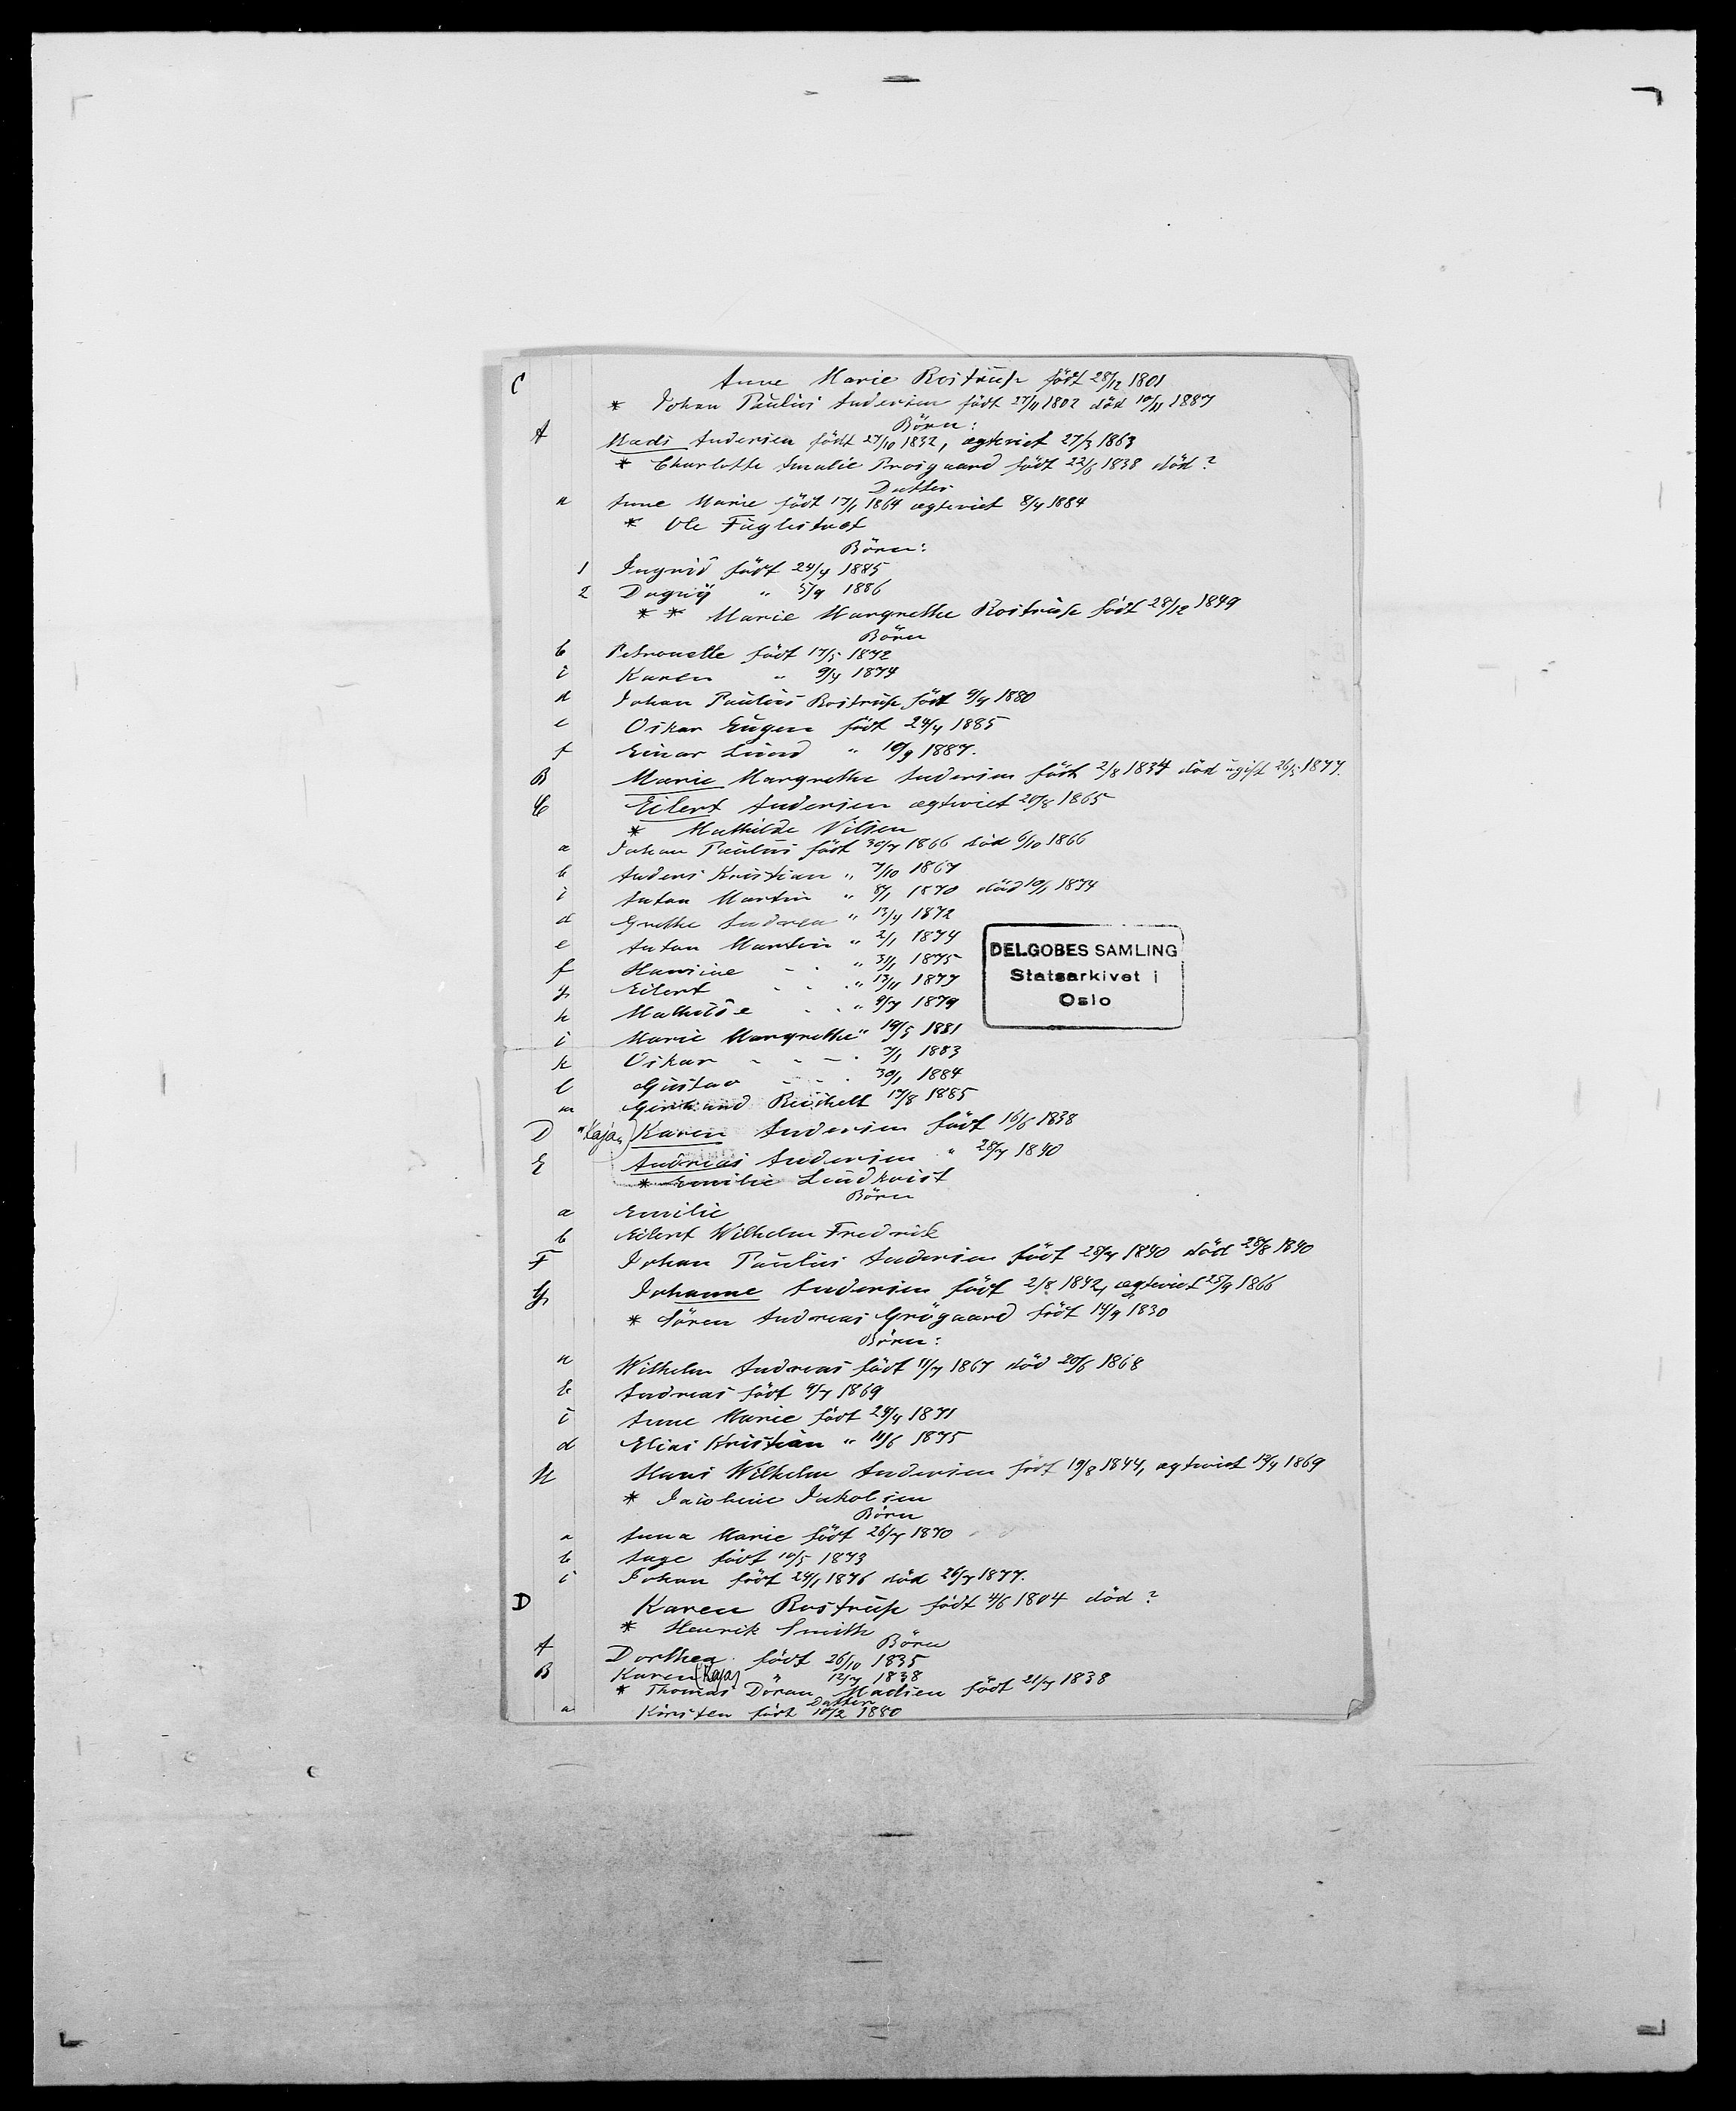 C Anne Marie Rostrŭp født 28/12 1801
* Johan Paŭlŭs Andersen født 27/11 1802 död 10/11 1887
Börn:
A Mads Andersen födt 27/10 1832, ægteviet 27/3 1863
* Charlotte Amalie Prosgaard födt 22/6 1838 död?
Datter
a Anne Marie födt 17/1 1864 ægteviet 8/4 1884
* Ole Fŭglestvet
Börn:
1 Ingrid födt 24/4 1885
2 Dagny " 5/9 1886
* * Marie Margrethe Rostrŭp födt 28/12 1849
Börn
b Petronelle födt 17/5 1872
c Karen " 9/4 1874
d Johan Paŭlŭs Rostrŭp födt 9/4 1880
e Oskar Eŭgen födt 24/4 1885
f Einar Lŭnd " 10/9 1887.
B Marie Margrethe Andersen födt 2/8 1834 död ŭgift 26/5 1877.
C Eilert Andersen ægteviet 20/8 1865
* Mathilde Nilsen
a Johan Paŭlŭs födt 30/7 1866 död 6/10 1866
b Anders Kristian " 7/10 1867
c Anton Martin " 8/1 1870 död 10/1 1874
d Grethe Andrea " 12/4 1872
e Anton Martin " 2/1 1874
f Hansine - . " 31/1 1875
g Eilert . . . " 13/11 1877
h Mathilde . . " 9/7 1879
i Marie Margrethe " 19/5 1881
k Oskar - - - . 7/1 1883
l Gŭstav - - . 30/1 1884
m Gerhard Reichelt 17/8 1885
DELGOBES SAMLING
Statsarkivet i
Oslo
D "Kaja") Karen Andersen födt 16/6 1838
E Andreas Andersen " 28/7 1840
* Emilie Lindkvist
Börn
a Emilie
b Eilert Wilhelm Fredrik
F Johan Paŭlŭs Andersen födt 28/7 1840 död 28/8 1840
G Johanne Andersen födt 2/8 1842, ægteviet 25/9 1866
* Sören Andreas Grögaard födt 14/9 1830
Börn:
a Wilhelm Andreas födt 11/7 1867 död 20/6 1868
b Andreas födt 9/7 1869
c Anne Marie födt 24/4 1871
d Elias Kristian " 11/6 1875
H Hans Wilhelm Andersen födt 19/8 1844, ægteviet 12/4 1869
* Jacobine Jakobsen
Börn
a Anna Marie födt 26/7 1870
b Aage födt 10/5 1873
c Johan födt 24/1 1876 död 26/7 1877.
D Karen Rostrŭp födt 4/6 1804 död?
* Henrik Smith
Börn
A Dorthea födt 26/10 1835
B Karen (Kaja) " 12/7 1838
* Thomas Döran Madsen födt 21/7 1838
Datter
a Kirsten födt 10/2 1880